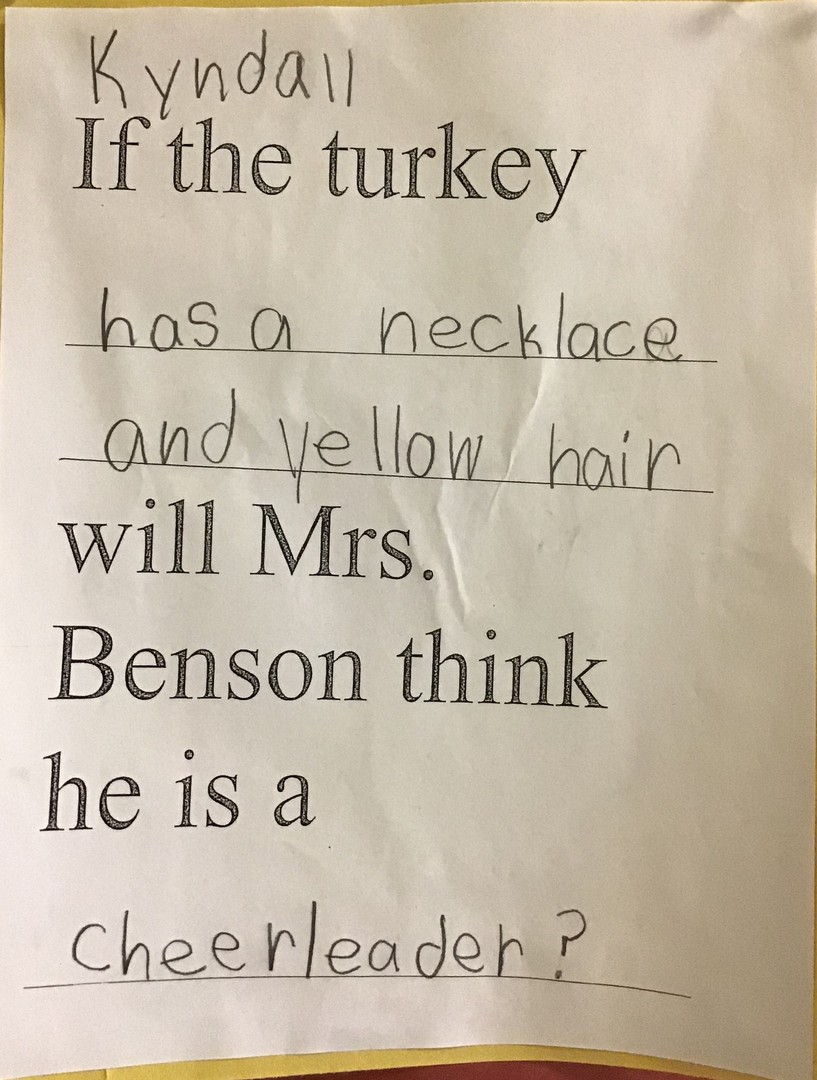 Kyndall
If the turkey
has a necklace
and yellow hair
will Mrs.
Benson think
he is a
cheerleader?